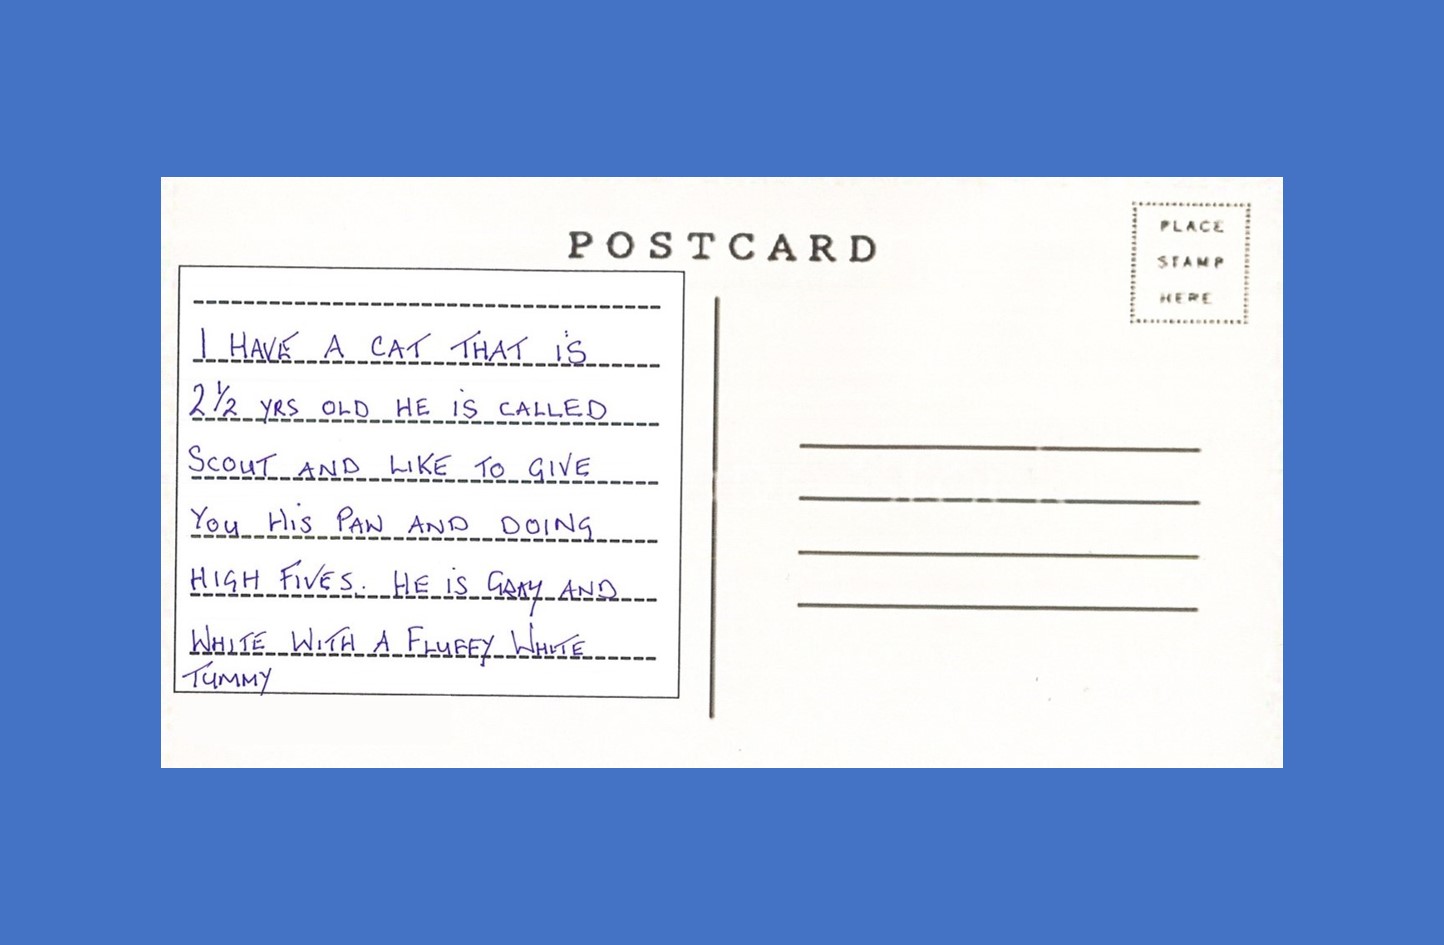 POSTCARD
PLACE
STAMP
HERE
I HAVE A CAT THAT IS
2½ YRS OLD HE IS CALLED
SCOUT AND LIKE TO GIVE
YOU HIS PAW AND DOING
HIGH FIVES. HE IS GRAY AND
WHITE WITH A FLUFFY WHITE
TUMMY